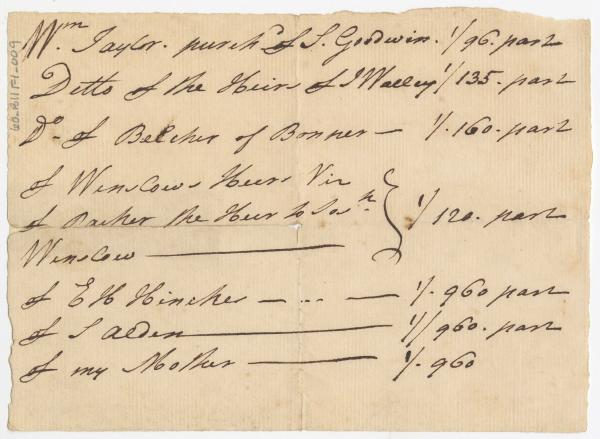 Wm. Taylor. purchd of S. Goodwin. 1/96. part
Ditto of the Heirs of J Walley 1/135. part
Do. of Belcher of Bonner — 1/.160. part
of Winslows Heirs Viz
of Parker the Heir to Josh } 1/120. part
Winslow ———
of E H Hinckes — ... — 1/.960 part
of S Alden ——— 1/960. part
of my Mother ——— 1/.960